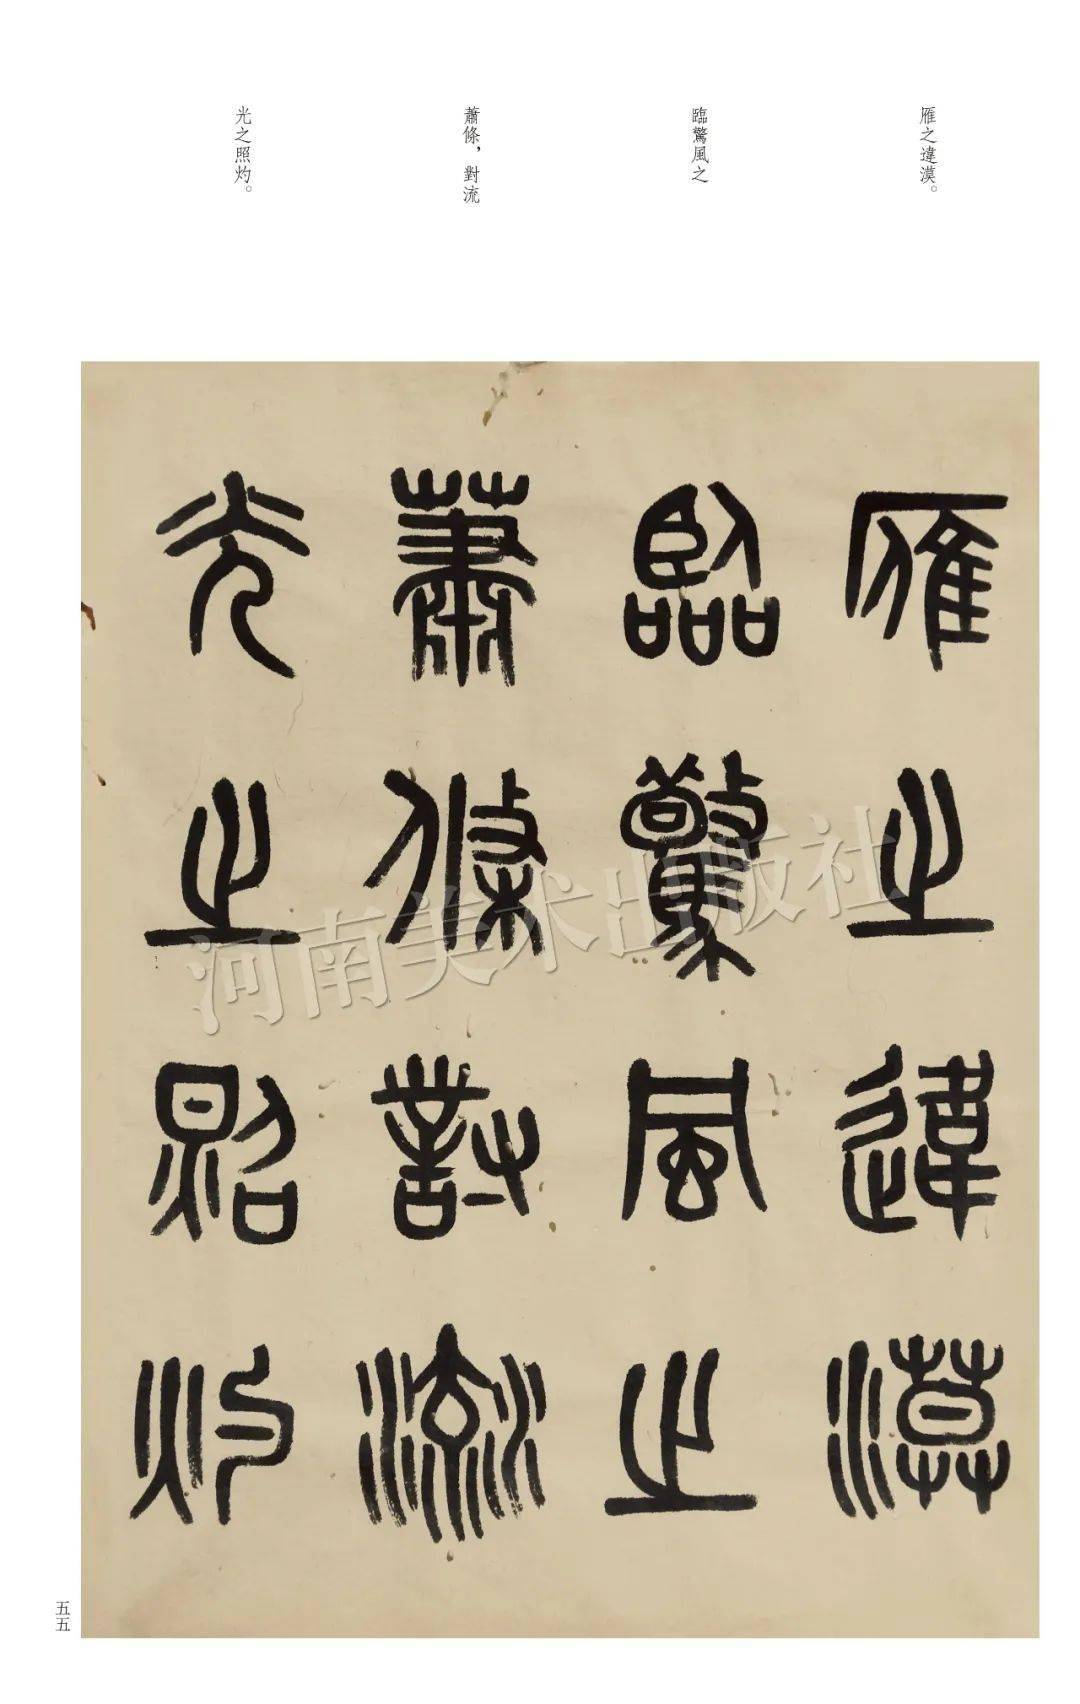 雁之違漠。
臨驚風之
蕭條，對流
光之照灼。
雁之違漠
臨驚風之
蕭條對流
光之照灼
河南美术出版社
五五